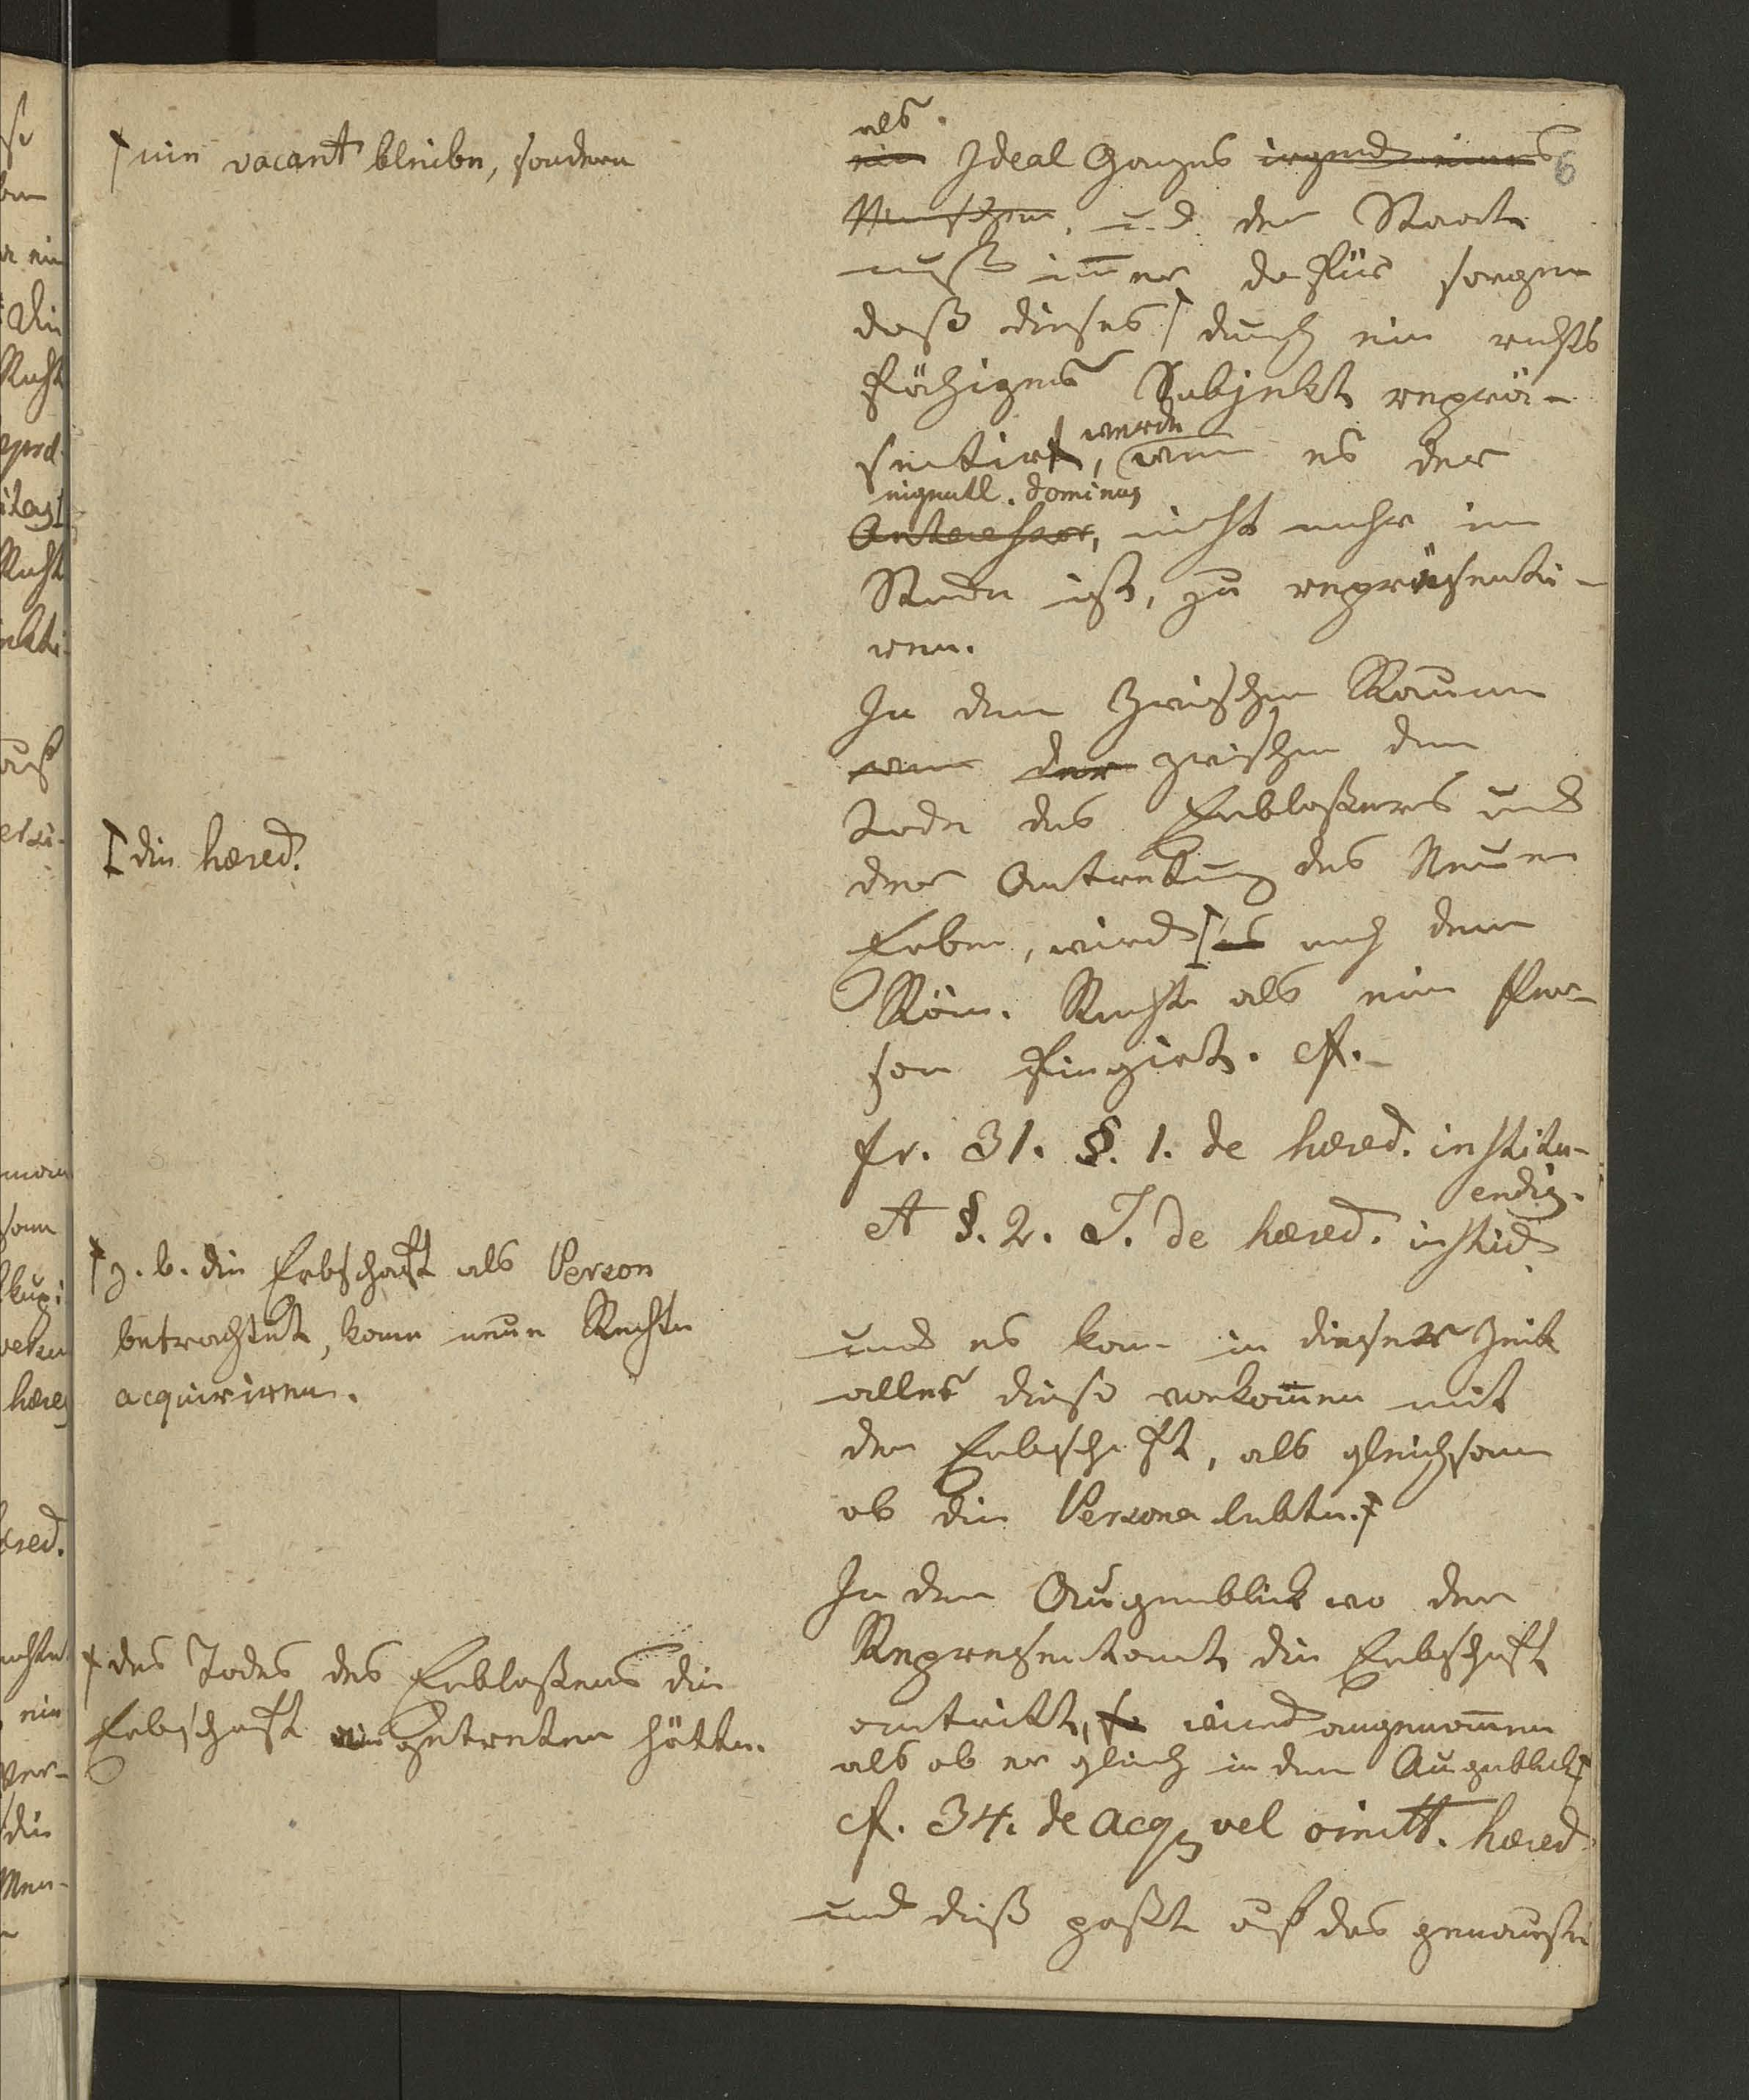 als
ein Ideal Ganzes irgend eines
6
Menschen. u.d. der Staat
muß im̅er dafür sorgen
daß dieses ⌈ durch ein rechts
fähiges Subjekt reprä-
sentirt, werde wenn es der
eigentl. dominus
Antecessor, nicht mehr im
Stande ist, zu repräsenti-
ren.
In dem Zwischen Raume
wenn der zwischen dem
Tode des Erblaßers und
der Antretung des Neuen
Erben, wird ⌈ es nach dem
Röm. Rechte als eine Per-
son fingirt. cf.
fr. 31. §. 1. de hæred. institu-
endis.
et §. 2. J. de hæred. instit.
und es kan̅ in dieser Zeit
alles dieß vorkom̅en mit
der Erbschaft, als gleichsam
ob die Persona lebte. ⌈
In dem Augenblick wo der
Represäntant die Erbschaft
antritt, so wird angenom̅en
als ob er gleich in dem Augenblick ⌈
cf. 34. de acq. vel omitt. hæred.
und dieß paßt auf das genauste
⌈ nie vacant bleiben, sondern
⌈ die hæred.
⌈ z. b. die Erbschaft als Person
betrachtet, kann neue Rechte
acquiriren.
⌈ des Todes des Erblaßers die
Erbschaft angetreten hätte.